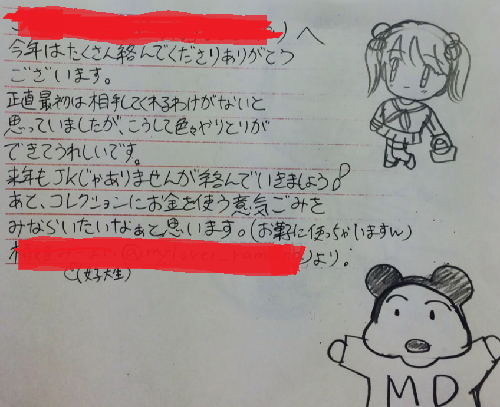 へ
今年はたくさん絡んでくださりありがとう
ございます。
正直最初は相手してくれるわけがないと
思っていましたが、こうして色々やりとりが
できてうれしいです。
来年もJKじゃありませんが絡んでいきましょう!
あと、コレクションにお金を使う意気ごみを
みならいたいなぁと思います。(お菓子に使っちゃいますん)
より!
(女子大生)
MD